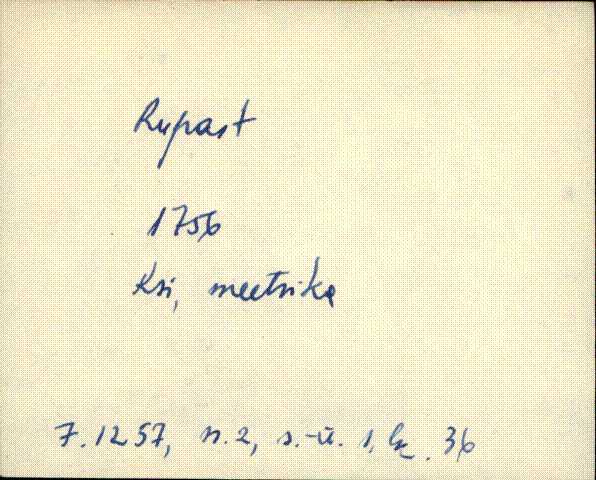 Rupast
1756
Ksi, meetrika
F. 1257, n. 2, s.-ü. 1, lk. 36